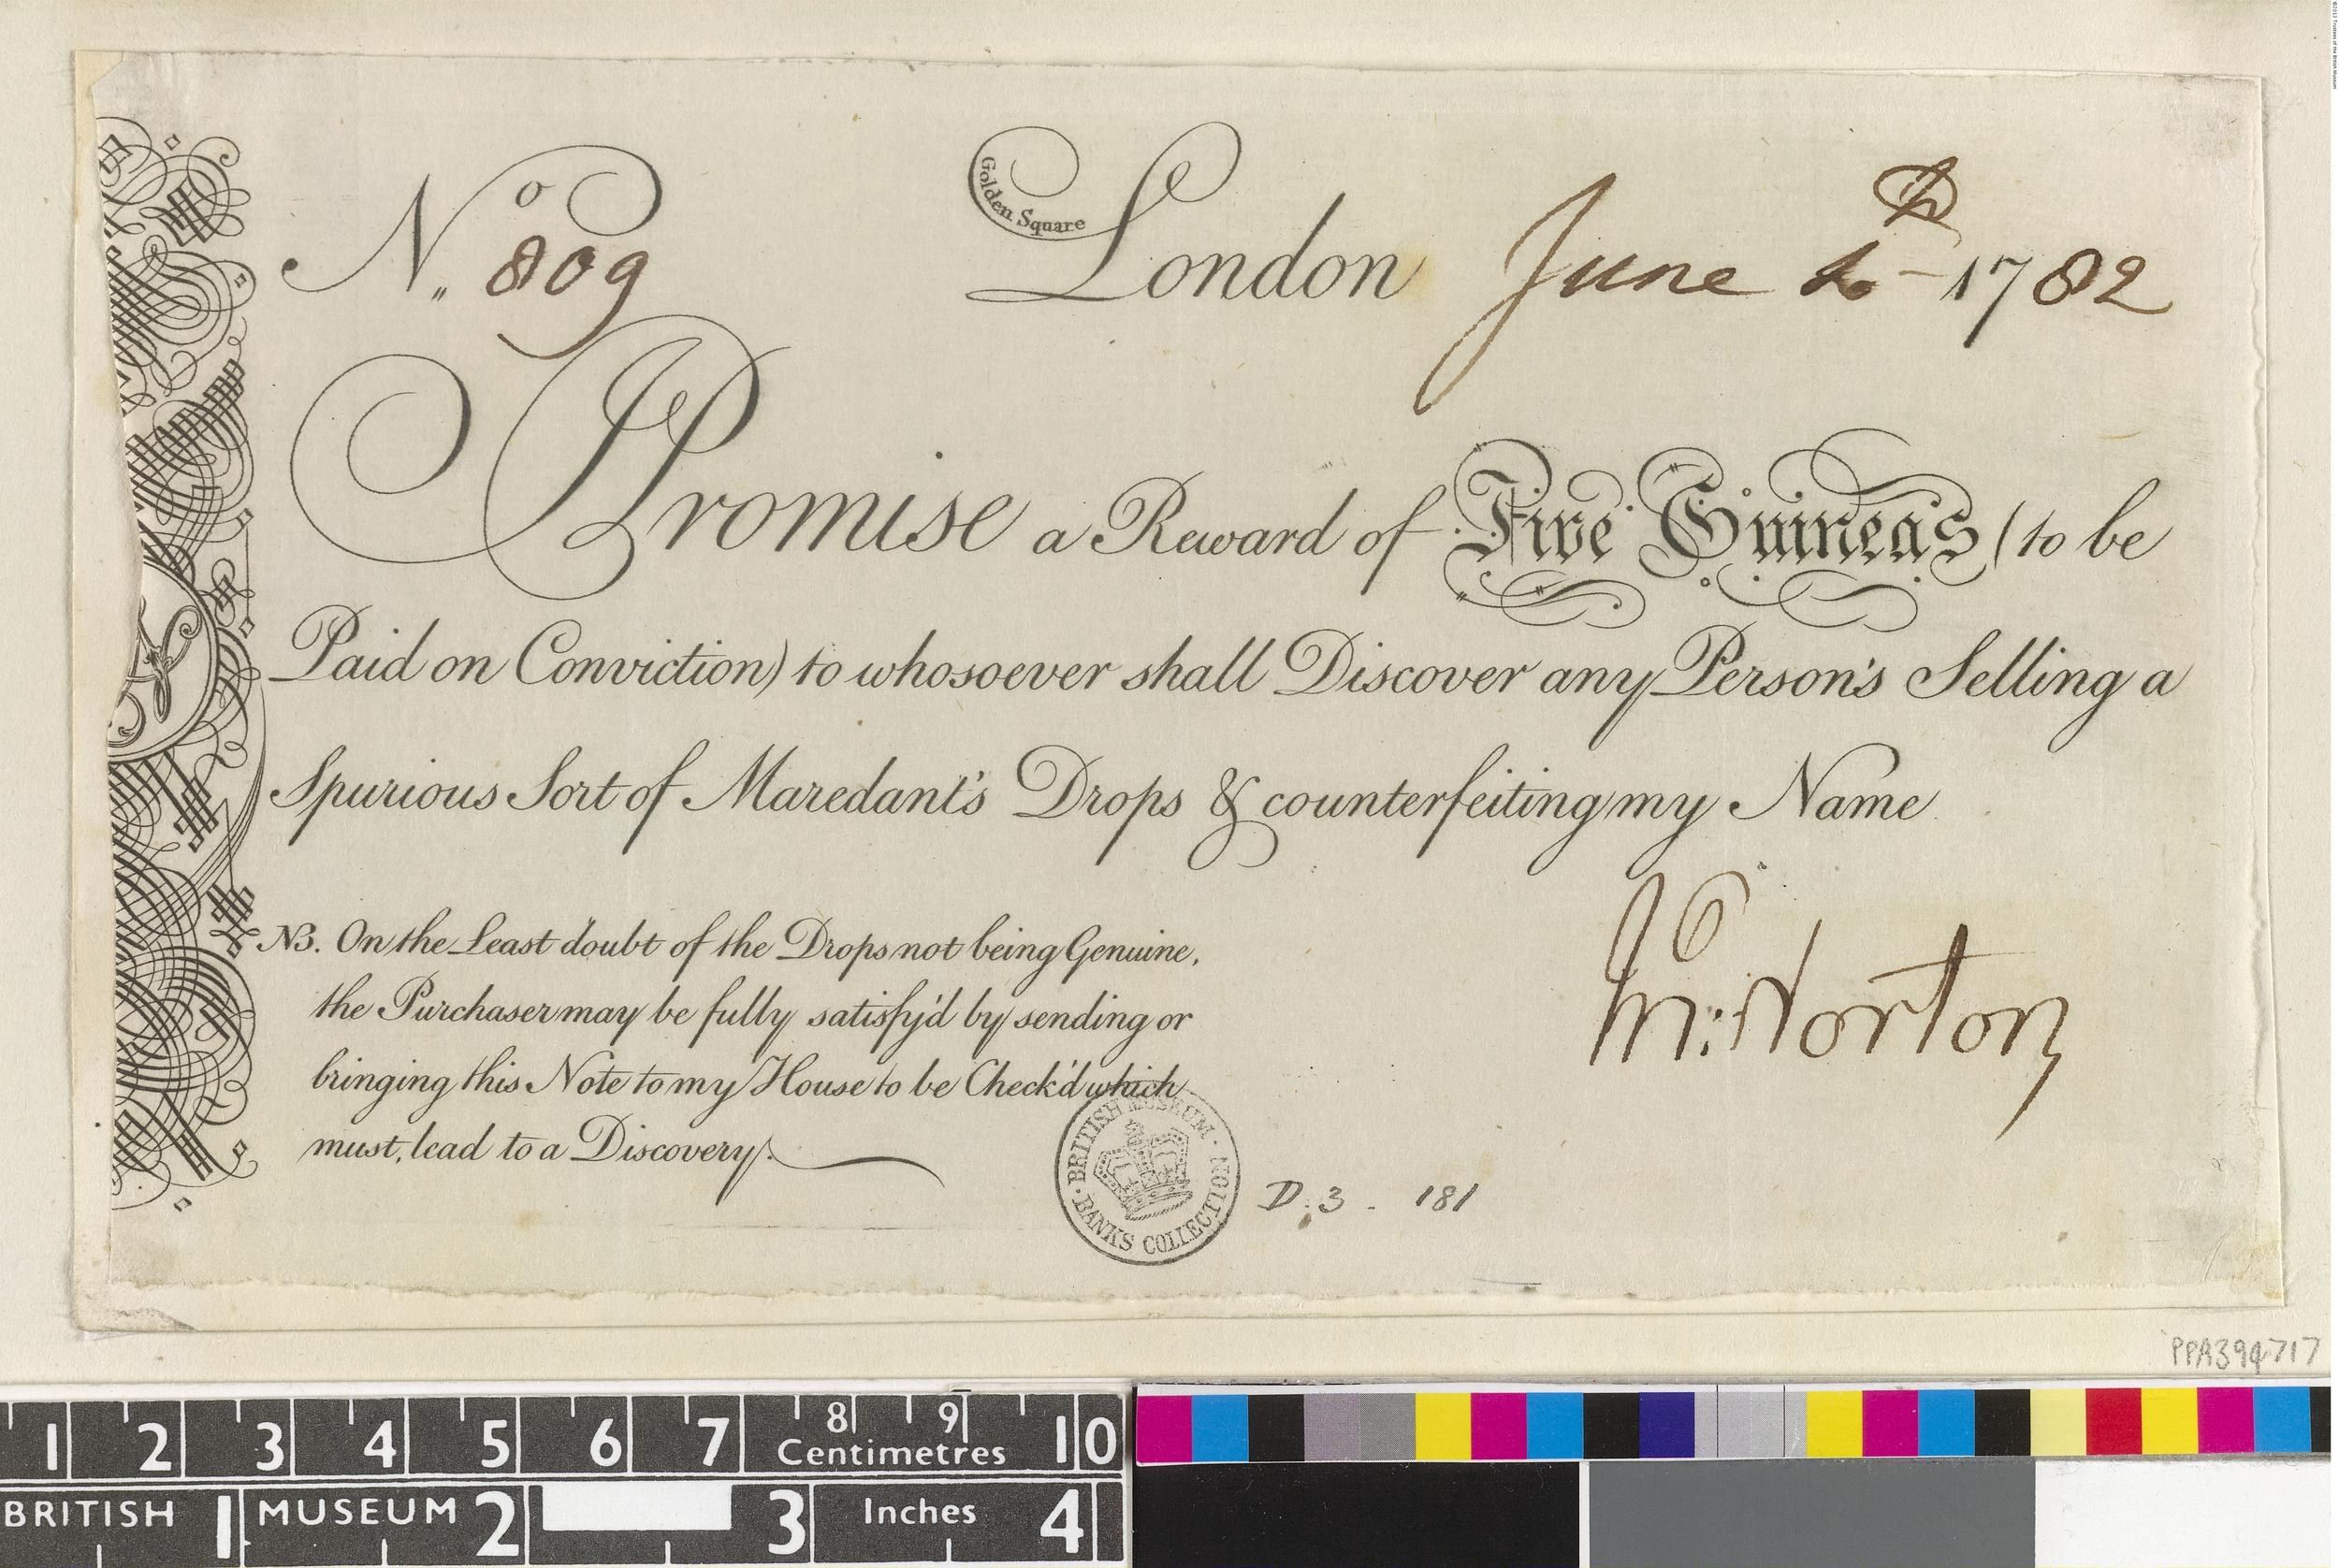 ©2017 Trustees of the British Museum
Golden Square
No. 809 London June 1782
I Promise a Reward of Five Guinea's (to be
Paid on Conviction) to whosoever shall Discover any Person's Selling a
Spurious Sort of Maredant's Drops & counterfeiting my Name
NB. On the Least doubt of the Drops not being Genuine,
the Purchaser may be fully satisfy'd by sending or
bringing this Note to my House to be Check'd which
must, lead to a Discovery.
Jn: Norton
BRITISH MUSEUM
BANKS COLLECTION
D.3 - 181
PPA394717
1 2 3 4 5 6 7 8 9 10
Centimetres
BRITISH 1 MUSEUM 2 3 Inches 4